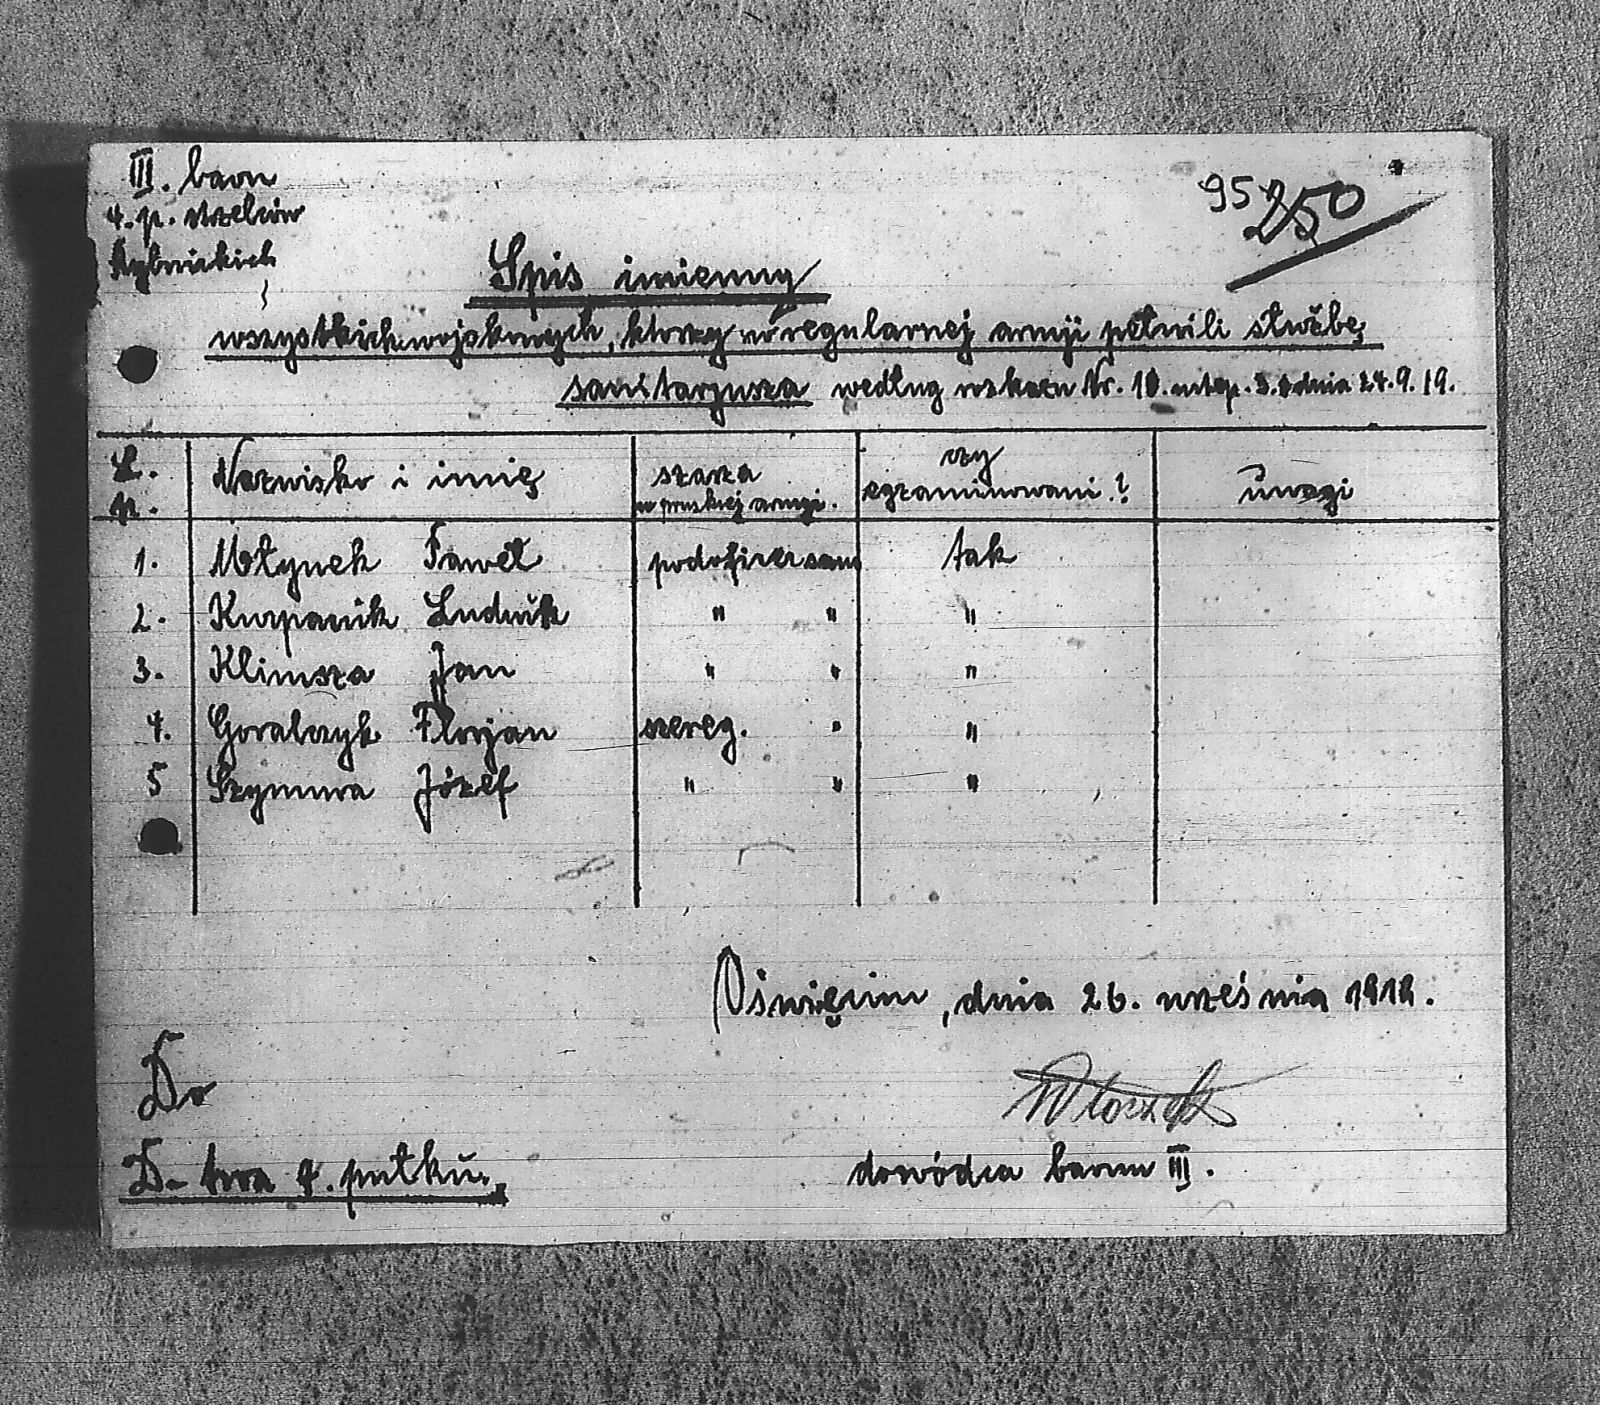 III. baon
4. p. strzelców
Rybnickich
95 250
Spis imienny
wszystkich wojskowych, ktorzy w regularnej armji pełnili służbę
sanitarjusza według rozkazu Nr. 10. ustęp. 3. z dnia 24.9.19.
L. p. Nazwisko i imię szarza w pruskiej armji. czy egzaminowani? uwagi
1. Młynek Paweł podoficer san tak
2. Kurpanik Ludwik " " "
3. Klimsza Jan " " "
4. Goralczyk Florjan szereg. " "
5 Szymura Józef " " "
Oświęcim, dnia 26. września 1919.
Do
D-twa 4. pułku.
dowódca baonu III.